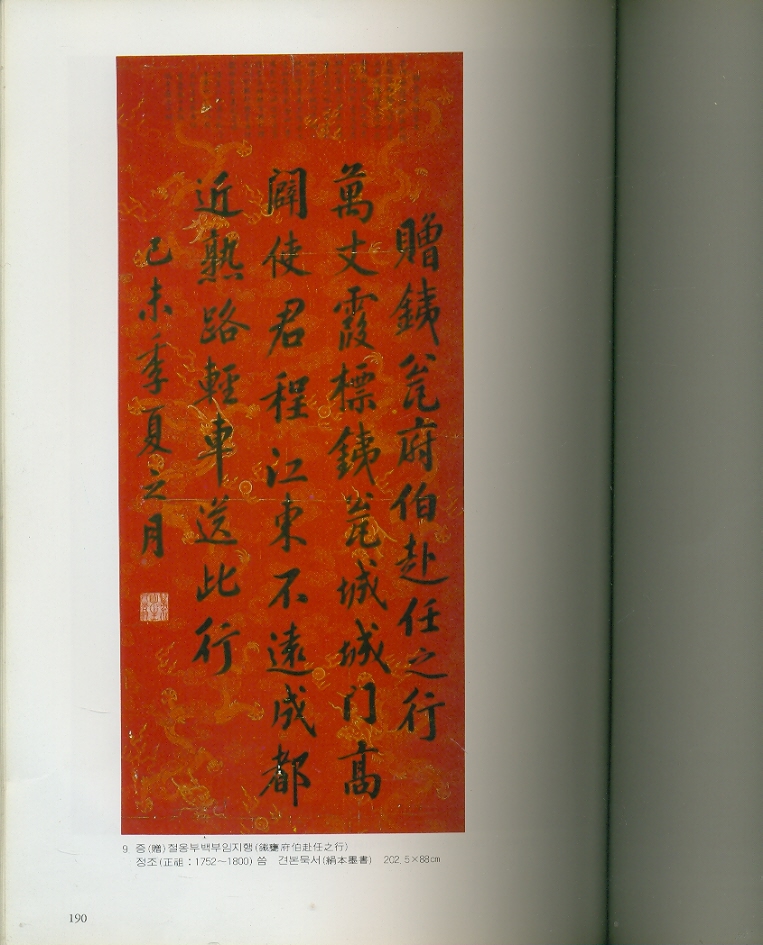 贈銕瓮府伯赴任之行
萬丈霞標銕瓮城城门高
闢使君程江東不遠成都
近熟路輕車送此行
己未季夏之月
9 증(贈)철옹부백부임지행(鐵甕府伯赴任之行)
정조(正祖：1752～1800) 씀 견본묵서(絹本墨書) 202.5×88㎝
190